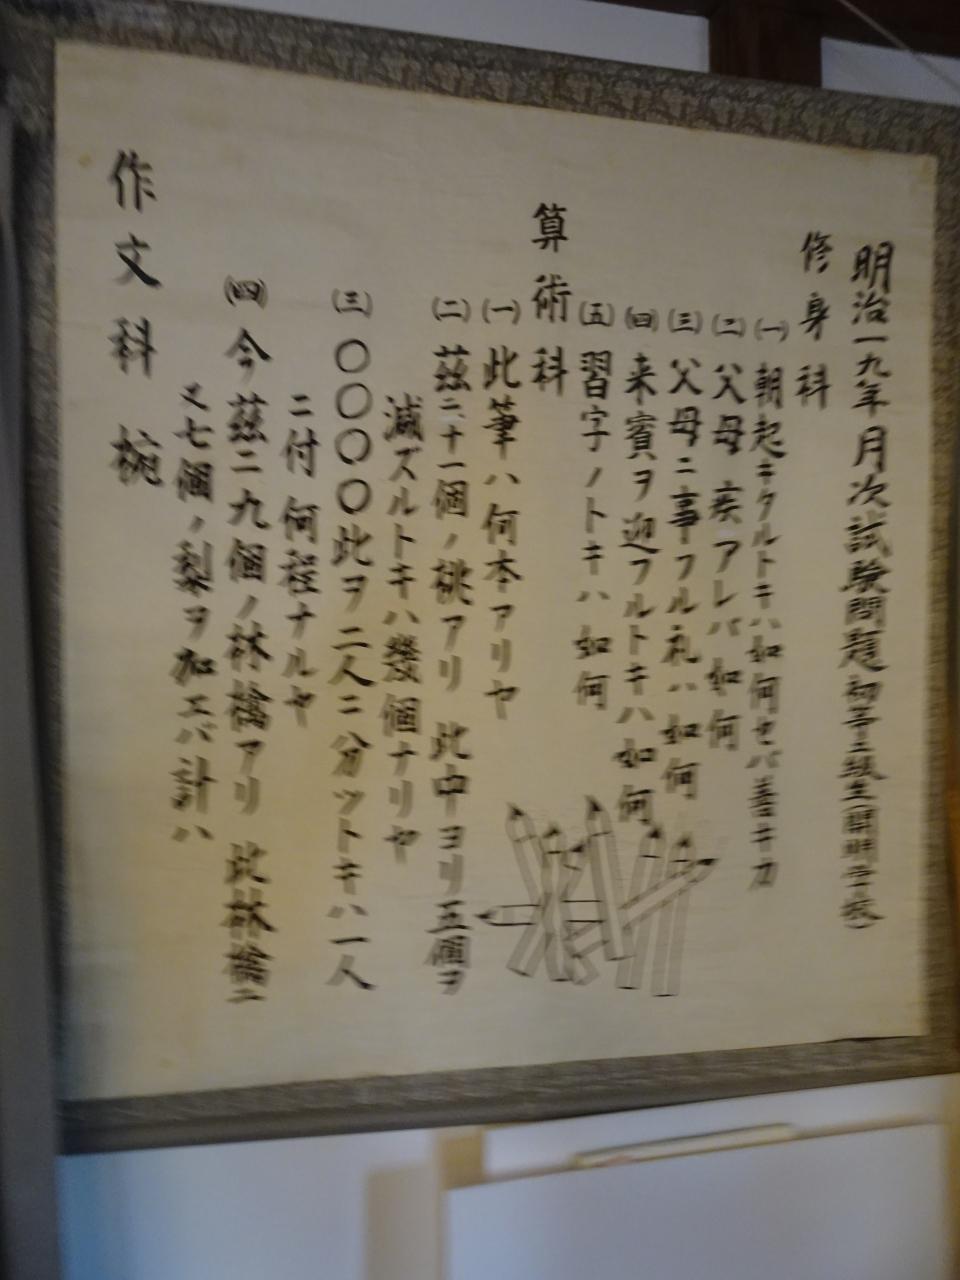 明治一九年月次試験問題 初等三級生(開明学校)
修身科
(一)朝起キタルトキハ如何セバ善キカ
(二)父母疾アレバ如何
(三)父母ニ事フル礼ハ如何
(四)来賓ヲ迎フルトキハ如何
(五)習字ノトキハ如何
算術科
(一)此筆ハ何本アリヤ
(二)茲ニ十一個ノ桃アリ 此中ヨリ五個ヲ
減ズルトキハ幾個ナリヤ
(三)〇〇〇〇此ヲ二人ニ分ツトキハ一人
ニ付何程ナルヤ
(四)今茲ニ九個ノ林檎アリ 此林檎ニ
又七個ノ梨ヲ加エバ計ハ
作文科 椀